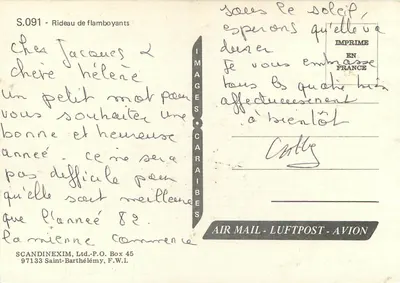 S.091 - Rideau de flamboyants
Cher Jacques &
chère hélène
un petit mot pour
vous souhaiter une
bonne et heureuse
année. ce ne sera
pas difficile pour
qu'elle soit meilleure
que l'année 82.
la mienne commence
SCANDINEXIM, Ltd.-P.O. Box 45
97133 Saint-Barthélémy, F.W.I.
IMAGES CARAIBES
sous le soleil,
esperons qu'elle va
durer
Je vous embrasse
tous les quatre bien
affectueusement
à bientôt
IMPRIME
EN
FRANCE
AIR MAIL - LUFTPOST - AVION